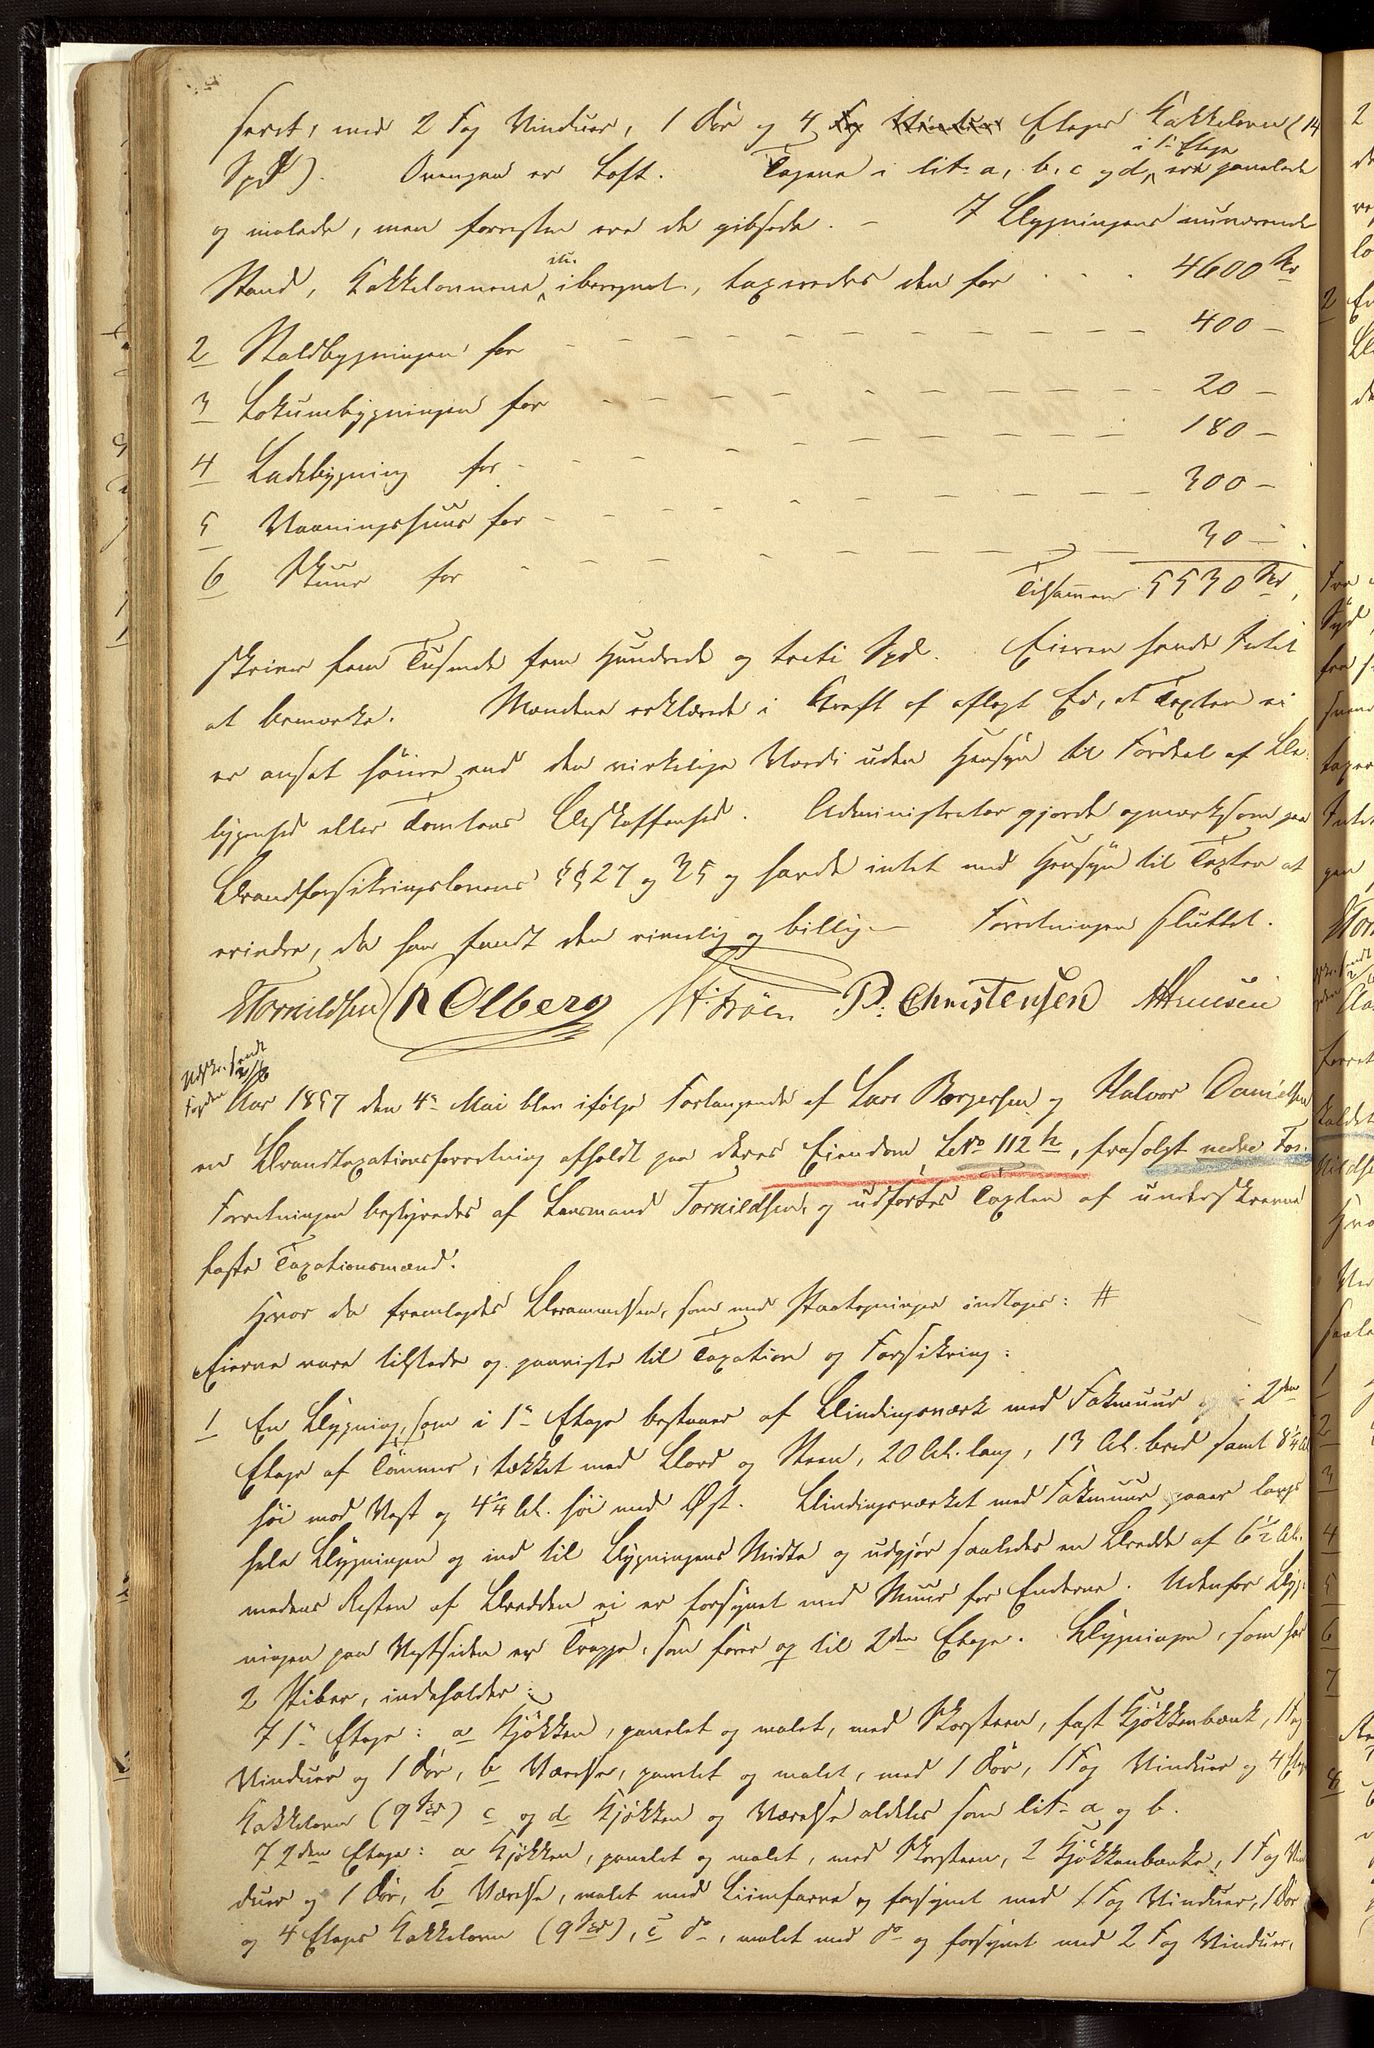 faret, med 2 Fag Vinduer, 1 Dör og 4 Etages Kakkelovn (14
Spd). Ovenpaa er Loft. Tagene i lit. a, b, c og d, i 1ste Etage ere panelede
og malede, men forresten ere de gibsede. – I Bygningens nuværende
Stand, Kakkelovnene iberegnet, taxeredes den for . . . 4600 Spd
2 Staldbygningen for – – – 400 –
3 Lokumsbygningen for – – – 20 –
4 Ladebygning for – – – 180 –
5 Vaaningshuus for – – – 300 –
6 Skuur for – – – 30 –
Tilsammen 5530 Spd,
skriver fem Tusende fem Hundrede og treti Spd. Eieren havde Intet
at bemærke. Mændene erklærede i Kraft af aflagt Ed, at Taxten ei
er ansat höiere end den virkelige Værdi uden Hensyn til Fordeel af Be-
liggenhed eller Tomtens Beskaffenhed. Administrator gjorde opmærksom paa
Brandforsikringslovens §§ 27 og 35 og havde intet med Hensyn til Taxten at
erindre, da han fandt den rimelig og billig. – Forretningen sluttet.
Tornildsen R Olberg P: Christensen
Udskr. sendt
Fogden 2/6
Aar 1857 den 4de Mai blev ifölge Forlangende af Lars Borgersen og Halvor Danielsen
en Brandtaxationsforretning afholdt paa deres Eiendom LNo 112 h, frasolgt nedre Fos.
Forretningen bestyredes af Lensmand Tornildsen, og udförtes Taxten af underskrevne
faste Taxationsmænd.
Hvor da fremlagdes Brammelsen, som med Paategninger indtages: #
Eierne vare tilstede og paaviste til Taxation og Forsikring:
1 En Bygning, som i 1ste Etage bestaaer af Bindingsværk med Fakmuur og i 2den
Etage af Tömmer, tækket med Bord og Steen, 20 Al. lang, 13 Al. bred samt 8 1/4 Al.
höi mod Vest og 4 1/4 Al. höi mod Øst. Bindingsværket med Fakmuur gaaer langs
hele Bygningen og ind til Bygningens Midte og udgjör saaledes en Bredde af 6 1/2 Al.
medens Resten af Bredden ei er forsynet med Muur for Enderne. Udenfor Byg-
ningen paa Vestsiden er Trappe, som förer op til 2den Etage. Bygningen, som har
2 Piber, indeholder:
I 1ste Etage: a Kjökken, panelet og malet, med Skorsteen, fast Kjökkenbænk, 1 Fag
Vinduer og 1 Dör, b Værelse, panelet og malet, med 1 Dör, 1 Fag Vinduer og 4 Etages
Kakkelovn (9 Spd) c og d Kjökken og Værelse aldeles som lit. a og b.
I 2den Etage: a Kjökken, panelet og malet, med Skorsteen, 2 Kjökkenbænke, 1 Fag Vin-
duer og 1 Dör, b Værelse, malet med Liimfarve og forsynet med 1 Fag Vinduer, 1 Dör
og 4 Etages Kakkelovn (9 Spd), c do, malet med do og forsynet med 2 Fag Vinduer,